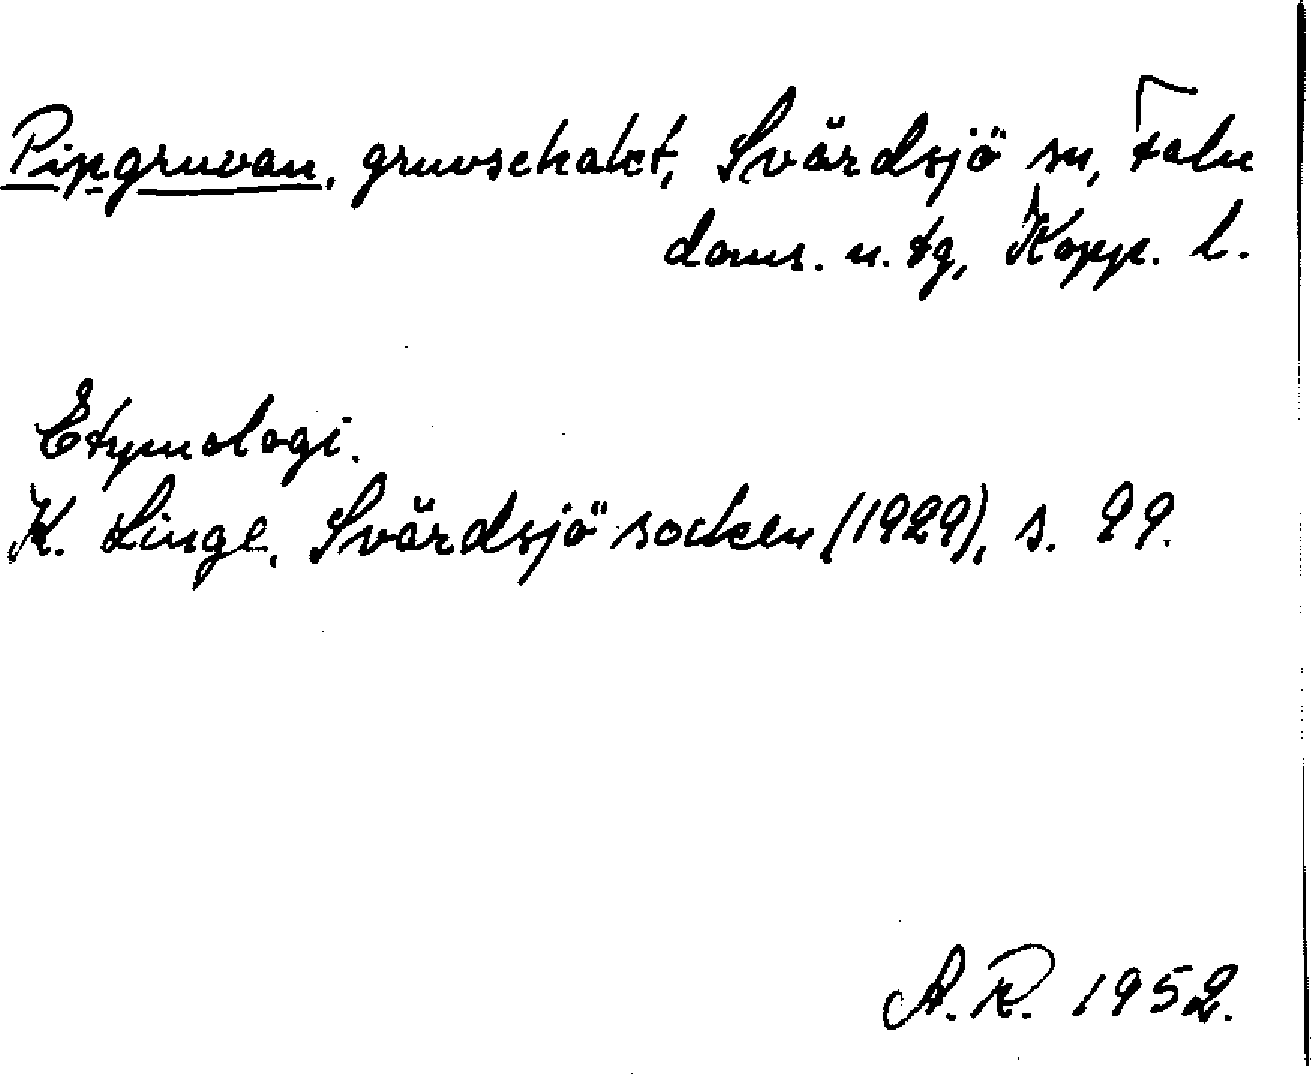 Pipgruvan, gruvschakt, Svärdsjö sn, Falu
doms. u. tg, Kopp. l.
Etymologi.
K. Linge, Svärdsjö socken (1929), s. 99.
A.R. 1952.